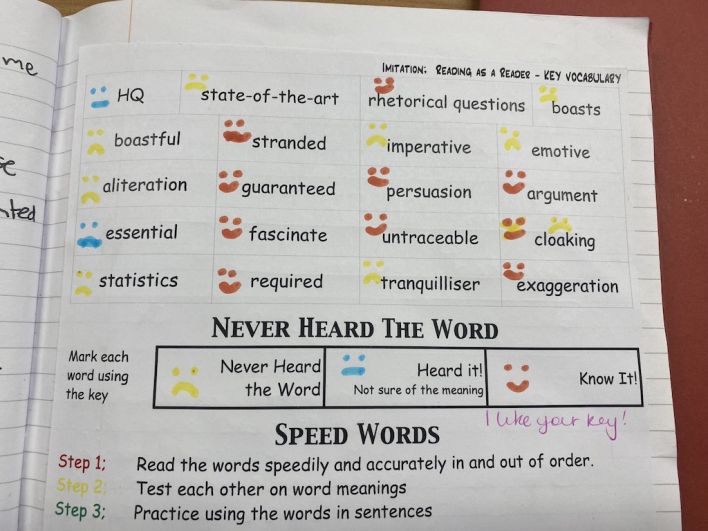 me
IMITATION: READING AS A READER - KEY VOCABULARY
HQ state-of-the-art rhetorical questions boasts
boastful stranded imperative emotive
aliteration guaranteed persuasion argument
essential fascinate untraceable cloaking
statistics required tranquilliser exaggeration
NEVER HEARD THE WORD
Mark each
word using
the key
Never Heard
the Word
Heard it!
Not sure of the meaning
Know It!
I like your key!
SPEED WORDS
Step 1; Read the words speedily and accurately in and out of order.
Step 2; Test each other on word meanings
Step 3; Practice using the words in sentences